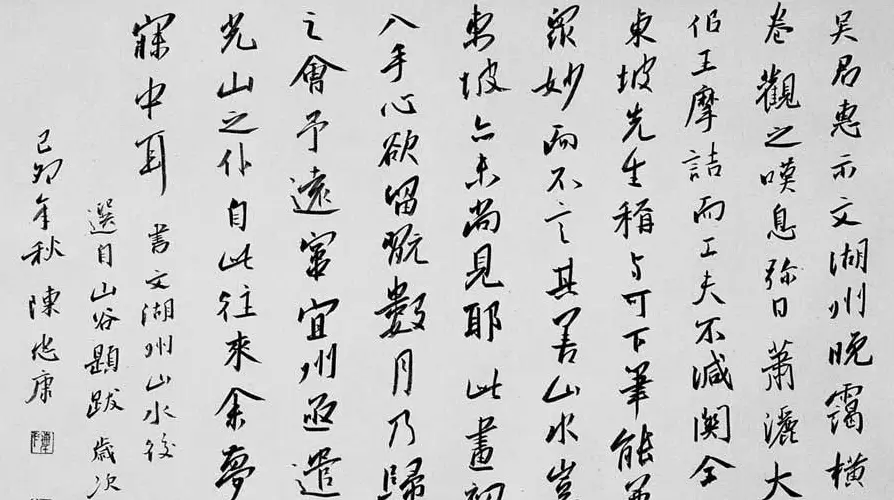 吴君惠示文湖州晚靄橫
卷觀之嘆息弥日蕭灑大
似王摩詰而工夫不減關仝
東坡先生稱與可下筆能兼
眾妙而不言其善山水豈
東坡亦未尚見耶此畫初
入手心欲留翫數月乃歸
之會予遠竄宜州亟遣
光山之仆自此往來余夢
寐中耳 書文湖州山水後
選自山谷題跋 歲次
己卯年秋 陳 康